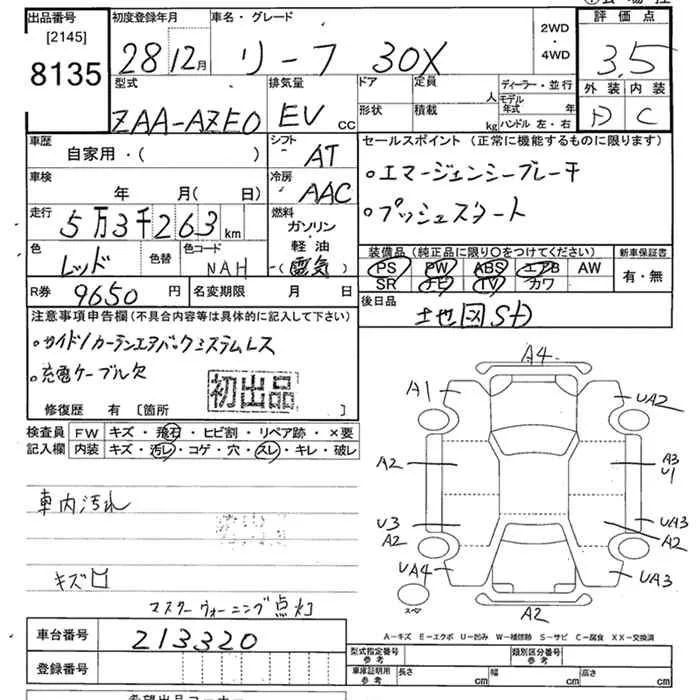 出品番号 初度登録年月 車名・グレード 2WD・4WD 評価点
[2145]
8135 28 12月 リーフ 30X 3.5
型式 排気量 ドア 定員 人 ディーラー・並行 外装 内装
ZAA-AZE0 EV CC 形状 積載 kg モデル年式 年 ハンドル 左・右 D C
車歴 シフト セールスポイント(正常に機能するものに限ります)
自家用・( ) AT
・エマージェンシーブレーキ
車検 冷房
年 月(日) AAC ・プッシュスタート
走行 燃料
5万3千263km ガソリン・軽油
色 色替 色コード 装備品(純正品に限り○をつけてください) 新車保証書
レッド NAH (電気) PS PW ABS エアB AW 有・無
SR ナビ TV カワ
R券 9650円 名変期限 月 日 後日品
注意事項申告欄(不具合内容等は具体的に記入して下さい) 
・サイド/カーテンエアバックシステムレス
・充電ケーブル欠
初出品
修復歴 有 [箇所 ]
検査員記入欄 FW キズ・飛石・ヒビ割・リペア跡・×要
内装 キズ・汚レ・コゲ・穴・スレ・キレ・破レ
車内汚れ
キズ
マスターウォーニング点灯
A4
A1 UA2
A2 A3
U1
U3 UA3
A2 A2
UA4 UA3
スペア A2
A-キズ E-エクボ U-凹み W-補修跡 S-サビ C-腐食 XX-交換済
車台番号 213320
型式指定番号参考 類別区分番号参考
登録番号 車庫証明用参考 長さ cm 幅 cm 高さ cm
希望出品コーナー